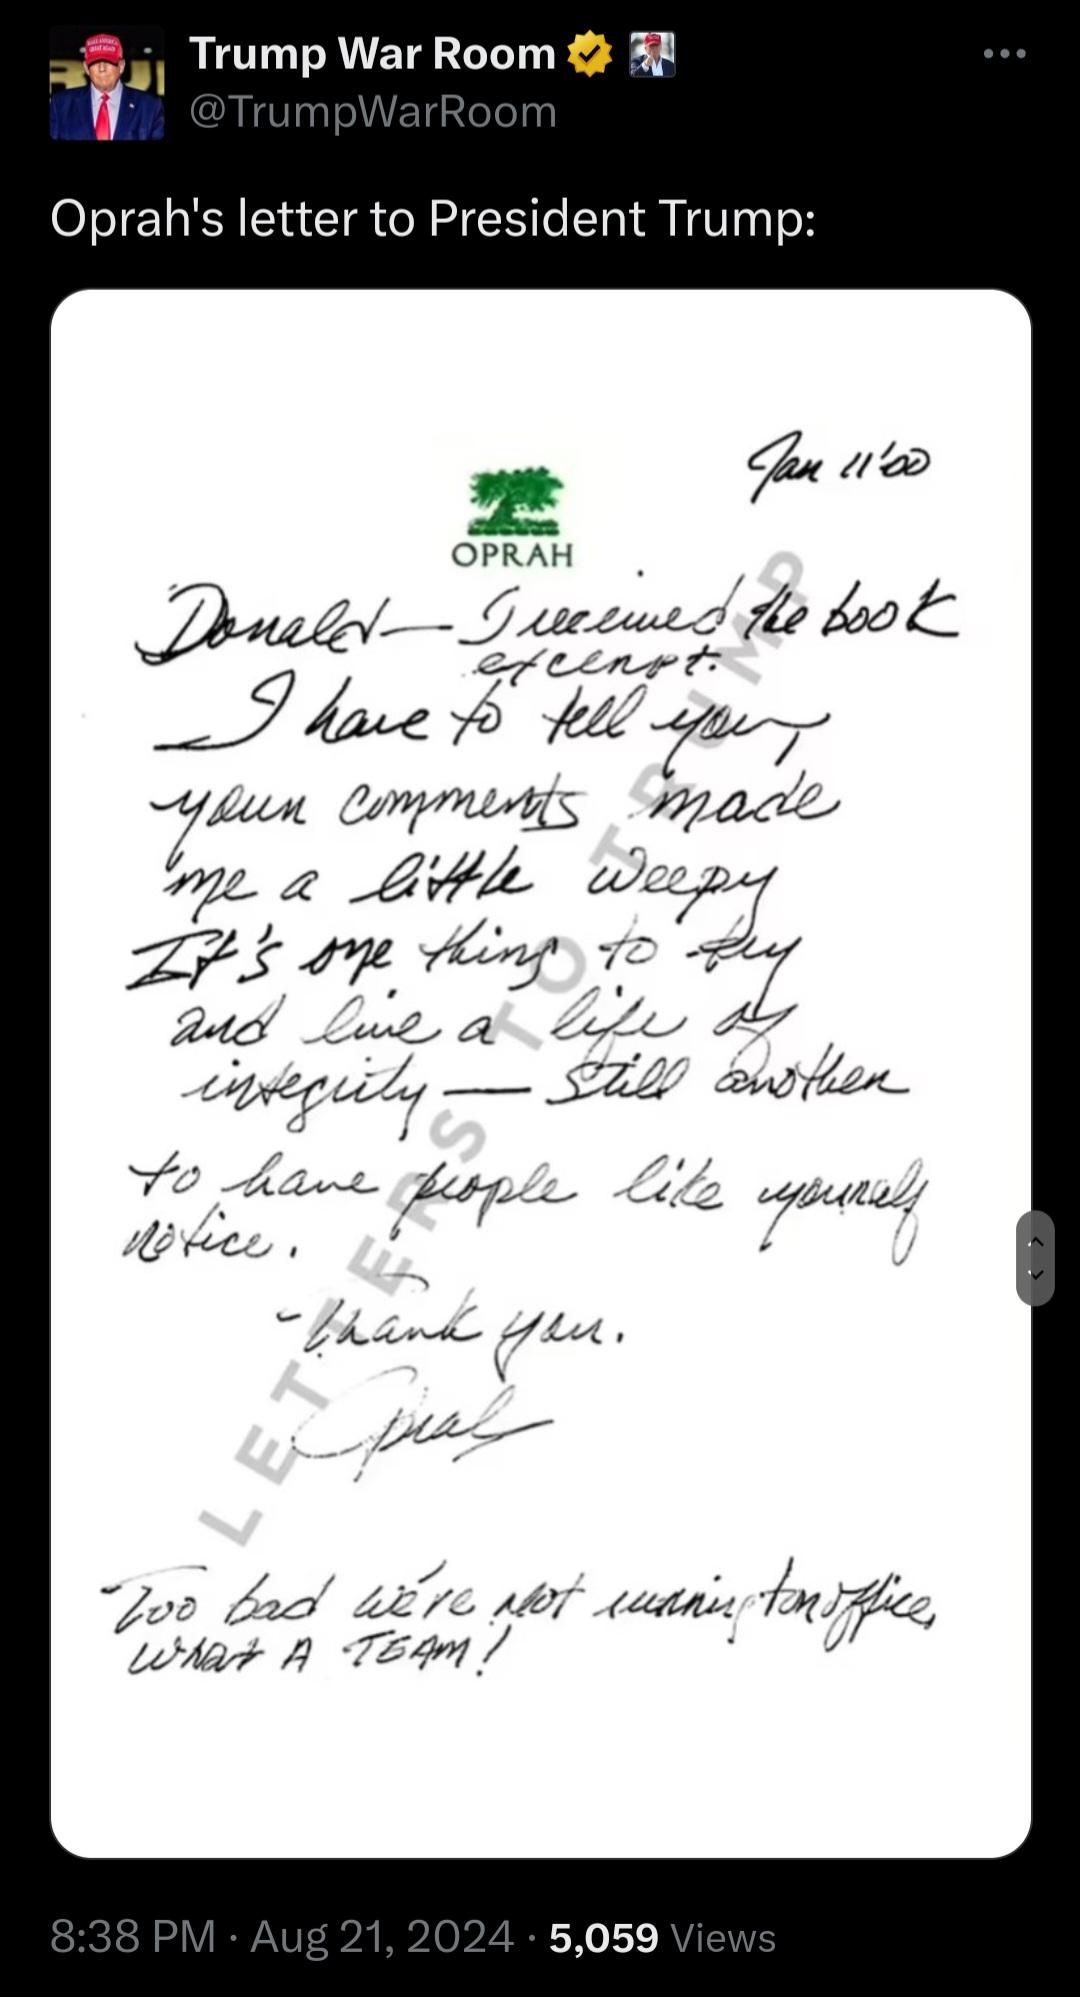 Trump War Room
@TrumpWarRoom
Oprah's letter to President Trump:
Jan 11'00
OPRAH
Donald — I received the book
excerpt.
I have to tell you,
your comments made
me a little weepy
It's one thing to try
and live a life of
integrity — still another
to have people like yourself
notice.
Thank you.
Oprah
Too bad we're not running for office,
WHAT A TEAM!
LETTERS TO TRUMP
8:38 PM · Aug 21, 2024 · 5,059 Views